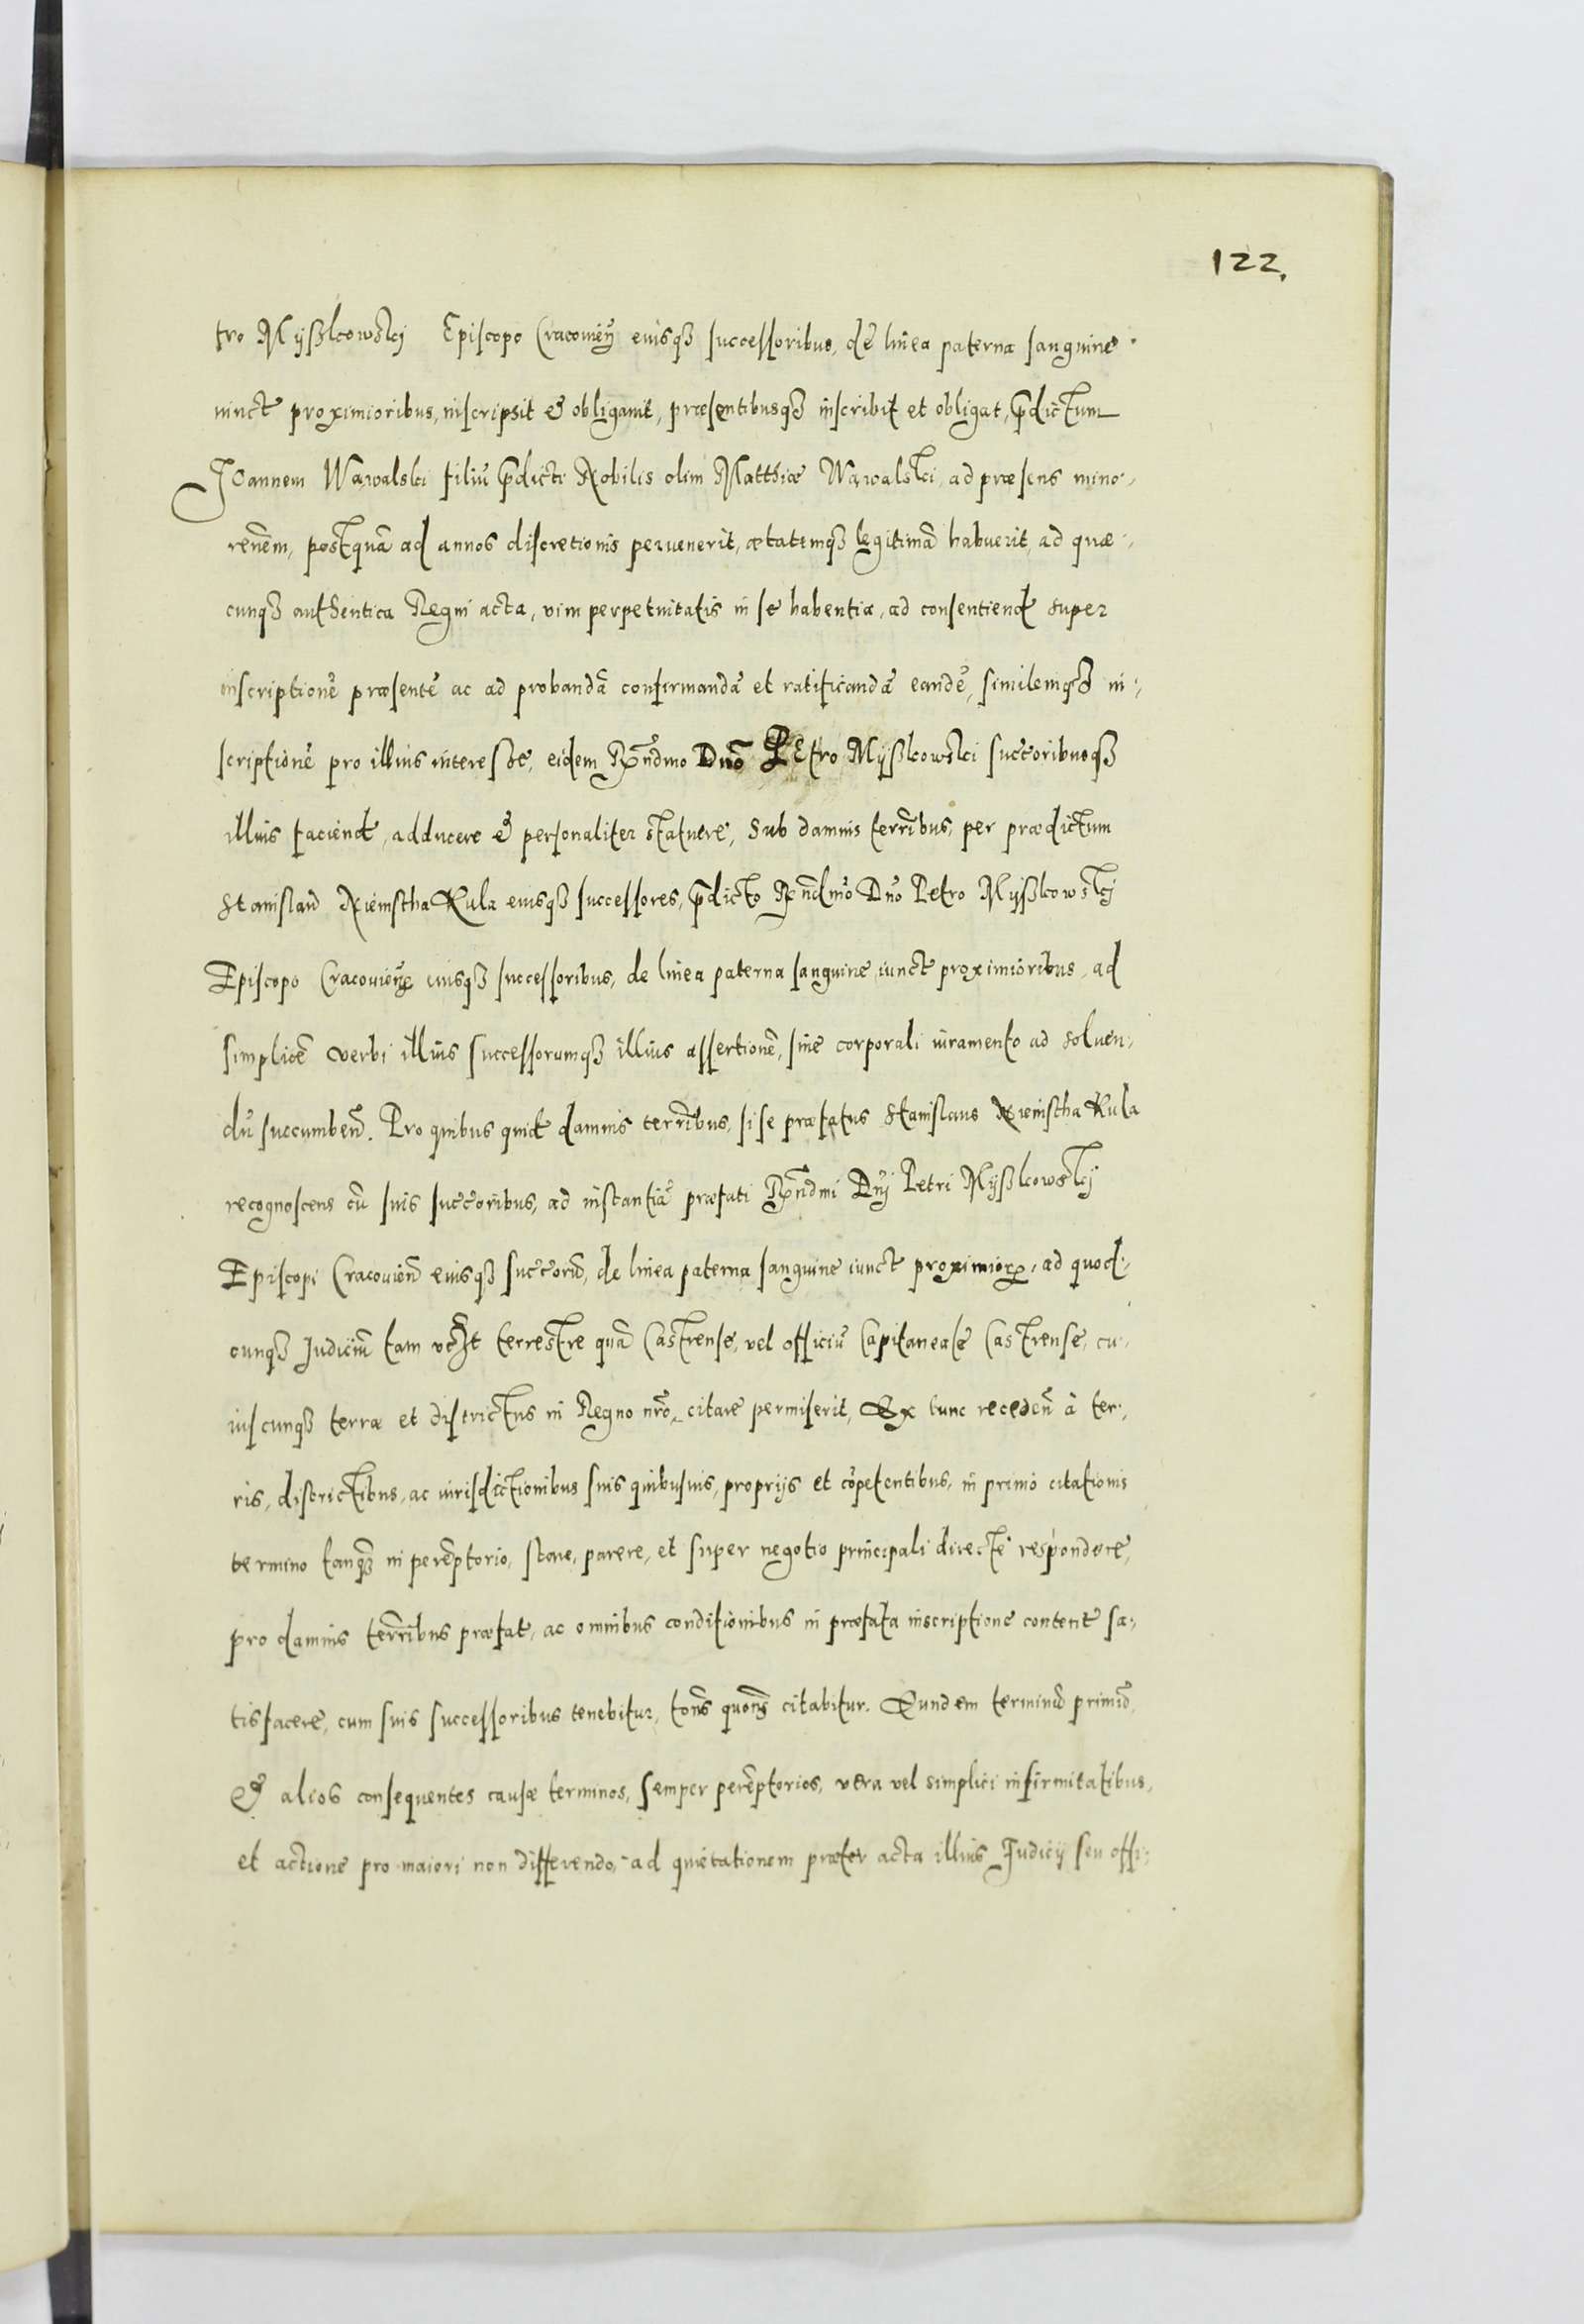 122.
tro Mÿßkowskj Episcopo Cracovieñ eiusq₃ successoribus, de linea paterna sanguine
iunct̃ proximioribus, inscripsit et obligavit, præsentibusq₃ inscribit et obligat, p̃dictum
Joannem Wawalski filiũ p̃dicti Nobilis olim Matthiæ Wawalski, ad præsens mino,
renem, postquã ad annos discretionis pervenerit, ætatemq₃ legitimã habuerit, ad quæ,
cunq₃ authentica Regni acta, vim perpetuitatis in se habentia, ad consentiend̃ super
inscriptionẽ præsentẽ ac ad probandã confirmandã et ratificandã eandẽ, similemq₃ in,
scriptionẽ pro illius interesse, eidem Rñdmo Dnõ PEtro Mÿßkowski succ̃oribusq₃
illius faciend̃, adducere et personaliter statuere, Sub damnis terr̃ibus, per prædictum
Stanislaũ Niemstha Kula eiusq₃ successores, p̃dicto Rñdmõ Dñõ Petro Mÿßkowskj
Episcopo Cracovieñ eiusq₃ successoribus, de linea paterna sanguine iunct̃ proximioribus, ad
simplicẽ verbi illius successorumq₃ illius assertionẽ, sine corporali iuramento ad solven,
dũ succumbeñ. Pro quibus quid̃ damnis terr̃ibus, si se præfatus Stanislaus Niemstha Kula
recognoscens cũ suis succ̃oribus, ad instantiã præfati Rñdmi Dñj Petri Mÿßkowskj
Episcopi Cracovieñ eiusq₃ succ̃orũ, de linea paterna sanguine iunct̃ proximior̃, ad quod,
cunq₃ Judiciũ tam terrestre quã Castrense, vel officiũ Capitaneale Castrense, cu,
iuscunq₃ terræ et districtus in Regno nrõ, citare permiserit, Ex tunc recedeñ à ter,
ris, districtibus, ac iurisdictionibus suis quibusuis, proprijs et cõpetentibus, in primo citationis
termino tanq̃ in perẽptorio, stare, parere, et super negotio principali directè respondere,
pro damnis terr̃ibus præfat̃, ac omnibus conditionibus in præfata inscriptione content̃ sa,
tisfacere, cum suis successoribus tenebitur, tot̃ns quot̃ns citabitur. Eundem terminũ primũ,
et alios consequentes causæ terminos, semper perẽptorios, vera vel simplici infirmitatibus,
et actione pro maiori non differendo, ad quietationem præter acta illius Judicij seu offi,